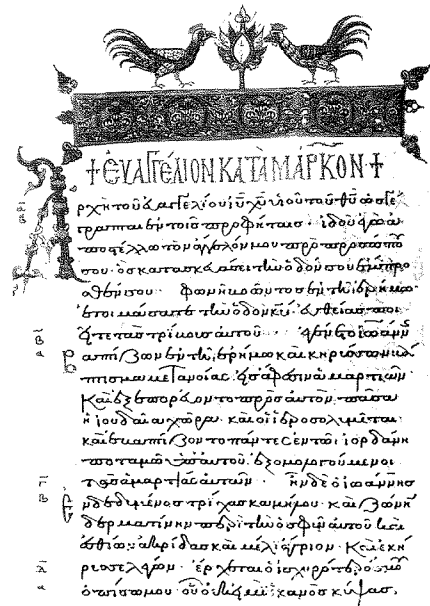 + ΕΥΑΓΓΕΛΙΟΝ ΚΑΤΑ ΜΑΡΚΟΝ +
Ἀρχὴ τοῦ εὐαγγελίου ἰῦ χῦ υἱοῦ τοῦ θῦ ὡς γέ
γραπται ἐν τοῖς προφήταις· ἰδοὺ ἐγὼ ἀ
ποστέλλω τὸν ἄγγελόν μου πρὸ προσώπου
σου· ὃς κατασκευάσει τὴν ὁδόν σου ἔμπρο
σθέν σου· φωνὴ βοῶντος ἐν τῇ ἐρήμω
ἑτοιμάσατε τὴν ὁδὸν κυ εὐθείας ποι
εῖτε τὰς τρίβους αὐτοῦ· ἐγένετο ἰωάννης
βαπτίζων ἐν τῇ ἐρήμω καὶ κηρύσσων βά
πτισμα μετανοίας εἰς ἄφεσιν ἁμαρτιῶν
Καὶ ἐξεπορεύοντο πρὸς αὐτὸν πᾶσα
ἡ ἰουδαία χώρα· καὶ οἱ ἱεροσολυμῖται·
καὶ ἐβαπτίζοντο πάντες ἐν τῶ ἰορδάνη
ποταμῶ ὑπ' αὐτοῦ ἐξομολογούμενοι
τὰς ἁμαρτίας αὐτῶν· ἦν δὲ ὁ ἰωάννησ
ἐνδεδυμένος τρίχας καμήλου· καὶ ζώνην
δερματίνην περὶ τὴν ὀσφὺν αὐτοῦ καὶ
ἐσθίων ἀκρίδας καὶ μέλι ἄγριον· Καὶ ἐκή
ρυσσε λέγων· ἔρχεται ὁ ἰσχυρότερός μου
ὀπίσω μου· οὗ οὐκ εἰμὶ ἱκανὸς κύψας,